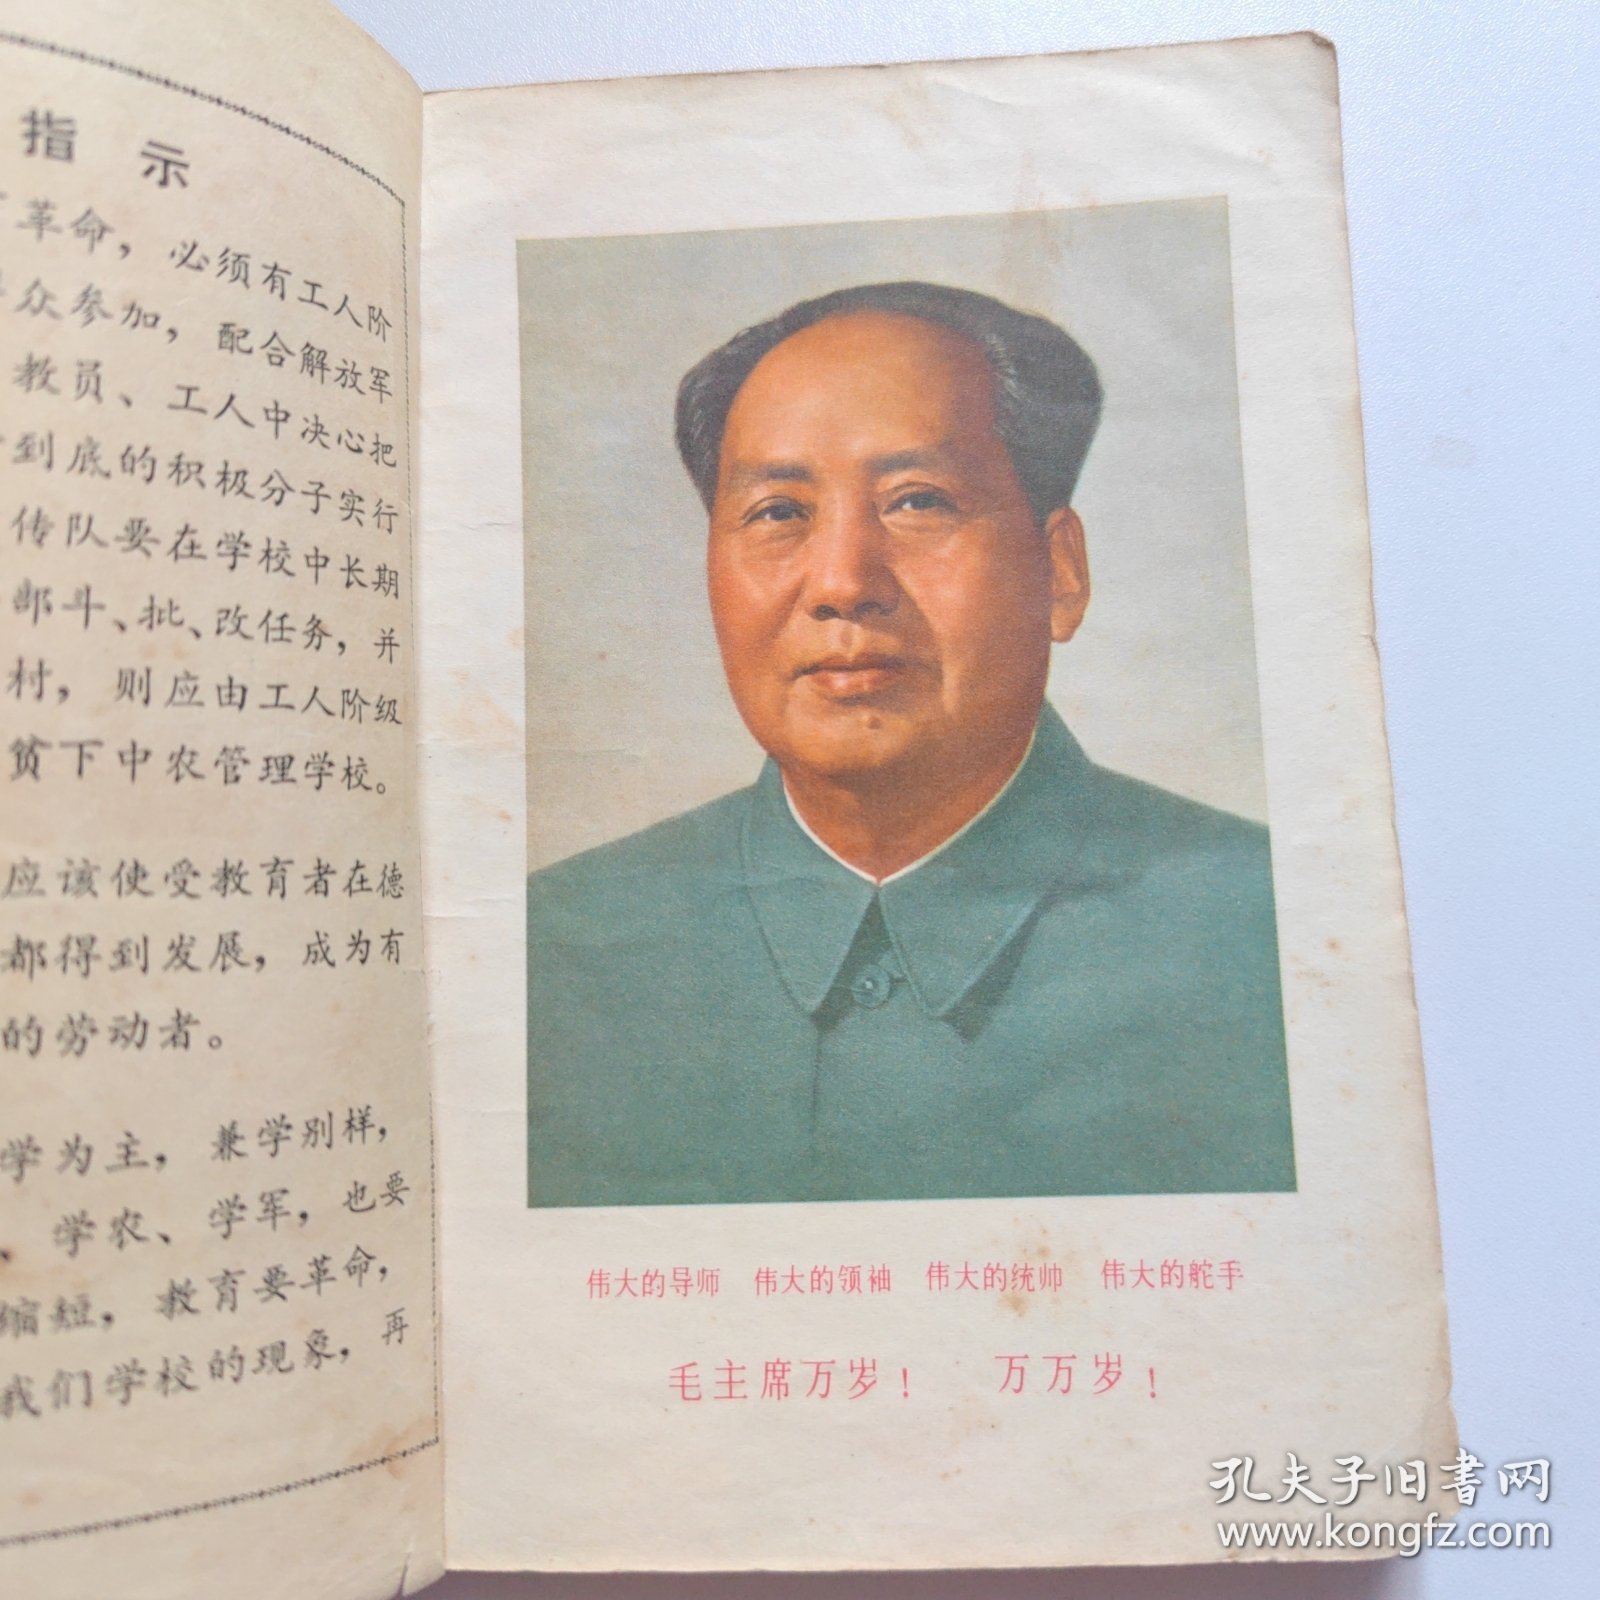 指示
革命，必须有工人阶
众参加，配合解放军
教员、工人中决心把
到底的积极分子实行
传队要在学校中长期
部斗、批、改任务，并
村，则应由工人阶级
贫下中农管理学校。
应该使受教育者在德
都得到发展，成为有
的劳动者。
学为主，兼学别样，
、学农、学军，也要
缩短，教育要革命，
我们学校的现象，再
伟大的导师 伟大的领袖 伟大的统帅 伟大的舵手
毛主席万岁！ 万万岁！
孔夫子旧书网
www.kongfz.com